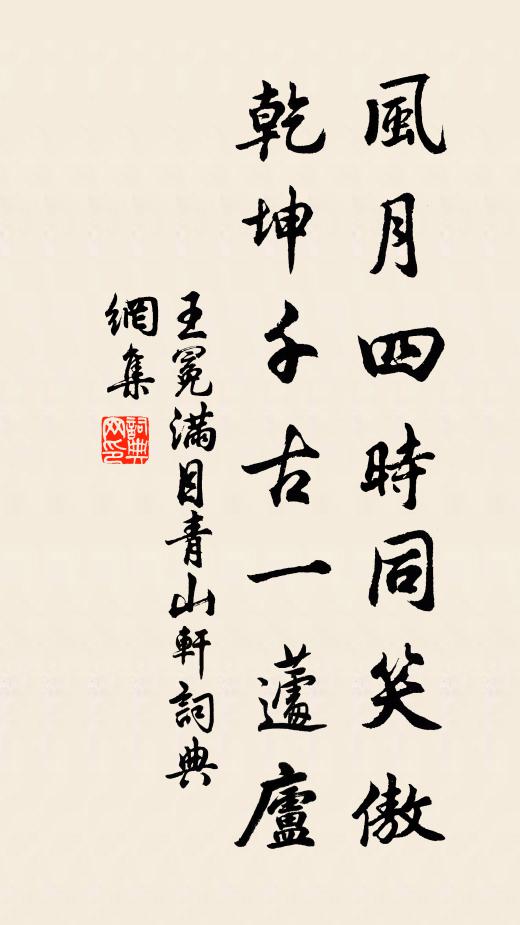 風月四時同笑傲
乾坤千古一蘧廬
王冕滿目青山軒詞典
網集
詞典
网印